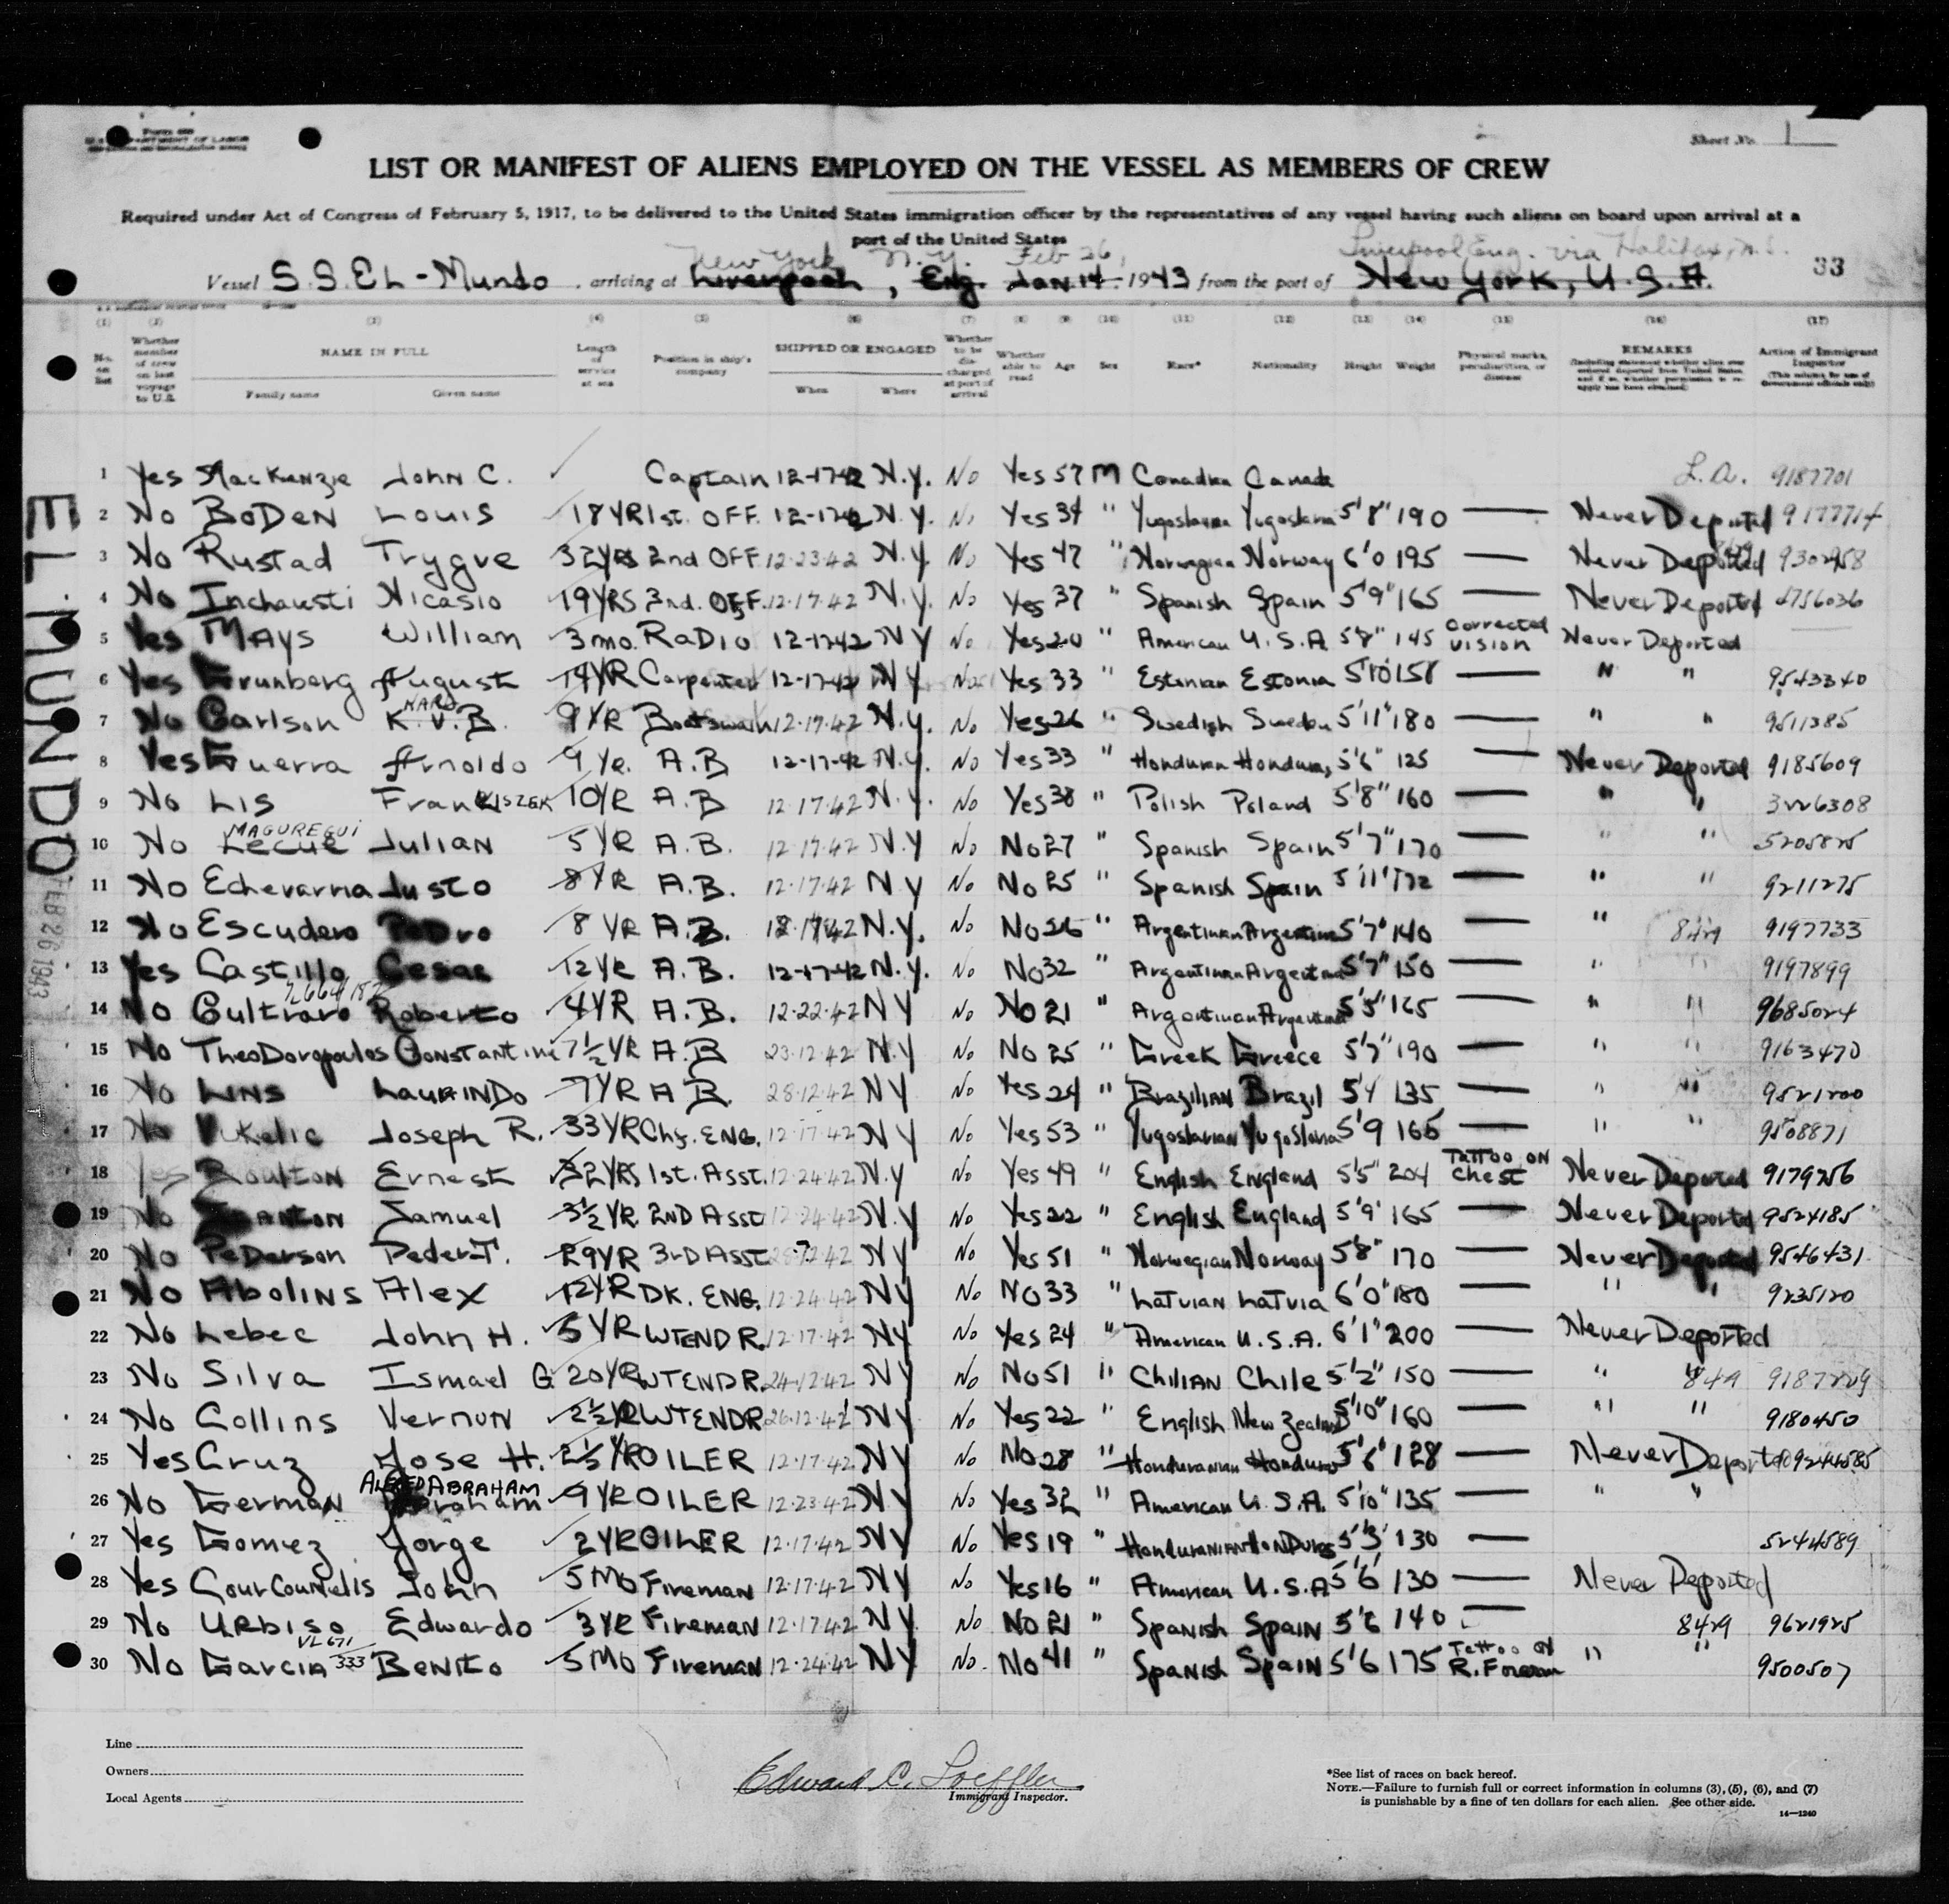 Form 680
U.S. DEPARTMENT OF LABOR
Sheet No. 1
LIST OR MANIFEST OF ALIENS EMPLOYED ON THE VESSEL AS MEMBERS OF CREW
Required under Act of Congress of February 5, 1917, to be delivered to the United States immigration officer by the representatives of any vessel having such aliens on board upon arrival at a
port of the United States
New York N.Y. Feb 26, Liverpool Eng. via Halifax, N.S.
Vessel S.S. EL-Mundo, arriving at Liverpool, Eng. Jan 14 1943 from the port of New York, U.S.A. 33
(1) (2) (3) (4) (5) (6) (7) (8) (9) (10) (11) (12) (13) (14) (15) (16) (17)
No. on list
Whether member of crew on last voyage to U.S.
NAME IN FULL
Family name Given name
Length of service at sea
Position in ship's company
SHIPPED OR ENGAGED
When Where
Whether to be discharged at port of arrival
Whether able to read
Age
Sex
Race*
Nationality
Height
Weight
Physical marks, peculiarities, or disease
REMARKS
Action of Immigrant Inspector
1 Yes MacKenzie John C. Captain 12-17-42 N.Y. No Yes 57 M Canadian Canada L.A. 9187701
2 No BoDeN Louis 18 YR 1st. OFF. 12-17-42 N.Y. No Yes 34 " Yugoslavian Yugoslavia 5'8" 190 — Never Deported 9177714
3 No Rustad Trygve 32 YRS 2nd OFF. 12-23-42 N.Y. No Yes 47 " Norwegian Norway 6'0 195 — Never Deported
4 No Inchausti Nicasio 19 YRS 3nd. OFF. 12-17-42 N.Y. No Yes 37 " Spanish Spain 5'9" 165 — Never Deported 4756036
5 Yes MAYs William 3 mo. RaDio 12-17-42 NY No Yes 20 " American U.S.A 5'8" 145 Corrected Vision Never Deported
6 Yes Grunberg August 14 YR Carpenter 12-17-42 NY Yes 33 " Estonian Estonia 5'10 158 — " " 9543340
7 No Carlson K.V.B. 9 YR Boatswain 12-17-42 N.Y. No Yes 26 " Swedish Sweden 5'11" 180 — " " 9511385
8 Yes Guerra Arnoldo 9 Ye. A.B 12-17-42 N.Y. No Yes 33 " Honduran Honduras 5'6" 125 — Never Deported 9185609
9 No Lis FranCISZEK 10 YR A.B 12-17-42 N.Y. No Yes 38 " Polish Poland 5'8" 160 — " " 3226308
MAGUREGUI
10 No Lecue Julian 5 YR A.B. 12-17-42 N.Y No No 27 " Spanish Spain 5'7" 170 — " " 5205825
11 No Echevarria Justo 8 YR A.B. 12-17-42 NY No No 25 " Spanish Spain 5'11" 172 — " " 9211275
12 No Escudero PeDro 8 YR A.B. 12-17-42 N.Y. No No 26 " Argentinan Argentina 5'7" 140 — " 849 9197733
13 Yes Castillo Cesar 12 YR A.B. 12-17-42 N.Y. No No 32 " Argentinan Argentina 5'7" 150 — " " 9197899
14 No Cultraro Roberto 4 YR A.B. 12-22-42 NY No No 21 " Argentinan Argentina 5'5" 165 — " " 9685024
15 No TheoDoropoulos Constantine 7½ YR A.B 23-12-42 N.Y No No 25 " Greek Greece 5'7" 190 — " " 9163470
16 No LINS LauRINDo 7 YR A B. 28-12-42 NY No Yes 24 " Brazilian Brazil 5'4 135 — " " 9521200
17 No Vukelic Joseph R. 33 YR Chf. ENG. 12-17-42 NY No Yes 53 " Yugoslavian Yugoslavia 5'9 165 — " " 9508871
18 Yes Boulton Ernest 32 YRS 1st. Asst. 12-24-42 N.Y No Yes 49 " English England 5'5" 204 Tattoo ON Chest Never Deported 9179256
19 No Samuel 3½ YR. 2ND Asst 12-24-42 N.Y No Yes 22 " English England 5'9" 165 — Never Deported 9524185
20 No PeDerson Peder T. 29 YR 3rD Asst NY No Yes 51 " Norwegian Norway 5'8" 170 — Never Deported 9546431
21 No Abolins Alex 12 YR DK. ENG. 12-24-42 NY No No 33 " Latvian Latvia 6'0" 180 — " " 9235120
22 No Lebec John H. 5 YR WTENDR. 12-17-42 NY No Yes 24 " American U.S.A. 6'1" 200 — Never Deported
23 No Silva Ismael G 20 YR WTENDR. 24-12-42 NY No No 51 " Chilian Chile 5'2" 150 — " " 849 9187209
24 No Collins Vernon 2½ YR WTENDR 26-12-42 NY No Yes 22 " English New Zealand 5'10" 160 — " " 9180450
25 Yes Cruz Jose H. 2½ YR OILER 12-17-42 NY No No 28 " Honduranian Honduras 5'6" 128 — Never Deported 9244585
ALFRED ABRAHAM
26 No German Abraham 9 YR OILER 12-23-42 NY No Yes 32 " American U.S.A. 5'10" 135 — " "
27 Yes Gomez Jorge 2 YR OILER 12-17-42 NY No Yes 19 " Honduranian HonDuras 5'3" 130 — 5244589
28 Yes CourCoumelis John 5 Mo Fireman 12-17-42 NY No Yes 16 " American U.S.A 5'6" 130 — Never Deported
29 No URbiso Edwardo 3 YR Fireman 12-17-42 NY No No 21 " Spanish Spain 5'6 140 — 849 9621925
30 No Garcia Benito 5 Mo Fireman 12-24-42 NY No. No 41 " Spanish Spain 5'6 175 Tattoo ON R. Forearm " " 9500507
EL MUNDO
FEB 26 1943
Line
Owners
Local Agents
Edward C. Loeffler
Immigrant Inspector.
*See list of races on back hereof.
NOTE.—Failure to furnish full or correct information in columns (3), (5), (6), and (7)
is punishable by a fine of ten dollars for each alien. See other side.
14—1240